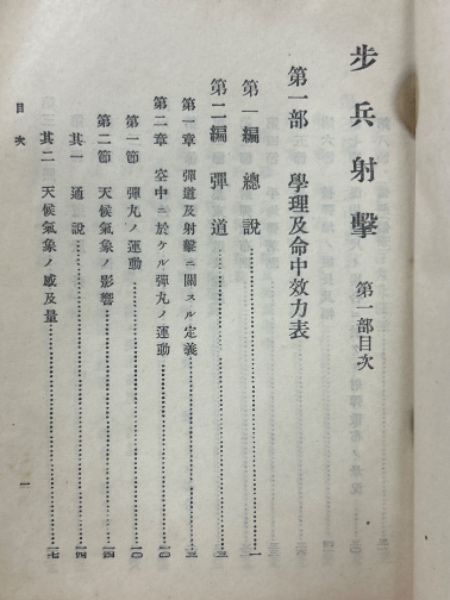 步兵射擊 第一部目次
第一部 學理及命中效力表
第一編 總說 一
第二編 彈道 三
第一章 彈道及射擊ニ關スル定義 三
第二章 空中ニ於ケル彈丸ノ運動 一〇
第一節 彈丸ノ運動 一〇
第二節 天候氣象ノ影響 一四
其一 通說 一四
其二 天候氣象ノ感及量 一七
目次
一